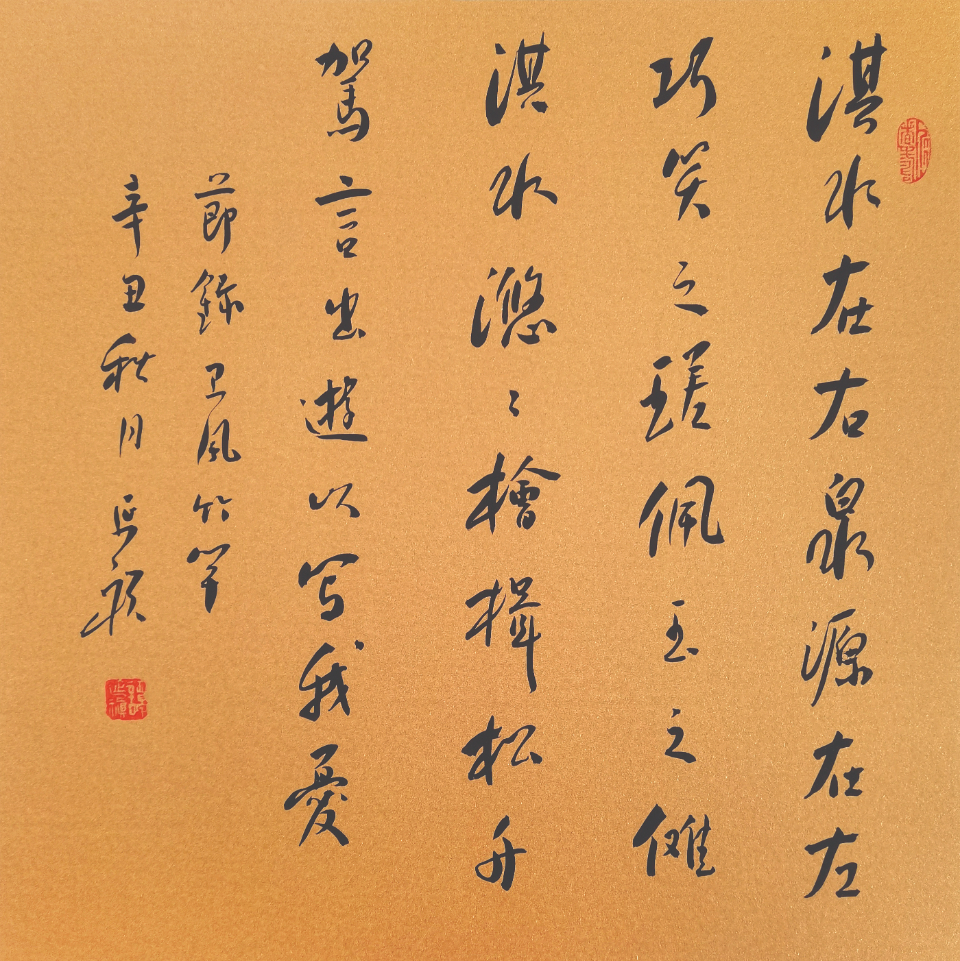 淇水在右泉源在左
巧笑之瑳佩玉之傩
淇水滺〻檜楫松舟
駕言出遊以写我憂
節錄卫風竹竿
辛丑秋月